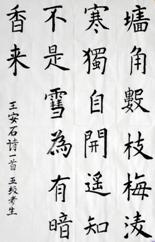 墻角數枝梅淩
寒獨自開遥知
不是雪為有暗
香来
王安石诗一首 考生